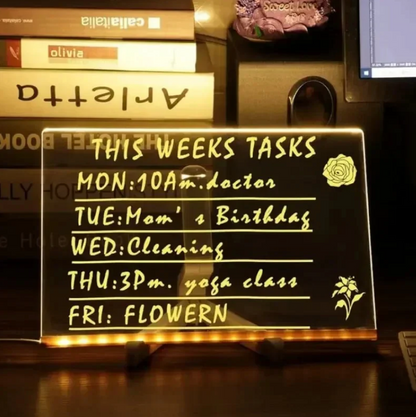 callaitalia
olivia
Arletta
THE HOTEL BOOK
THIS WEEKS TASKS
MON:10Am.doctor
TUE:Mom's Birthdag
WED:Cleaning
THU:3Pm. yoga class
FRI: FLOWERN